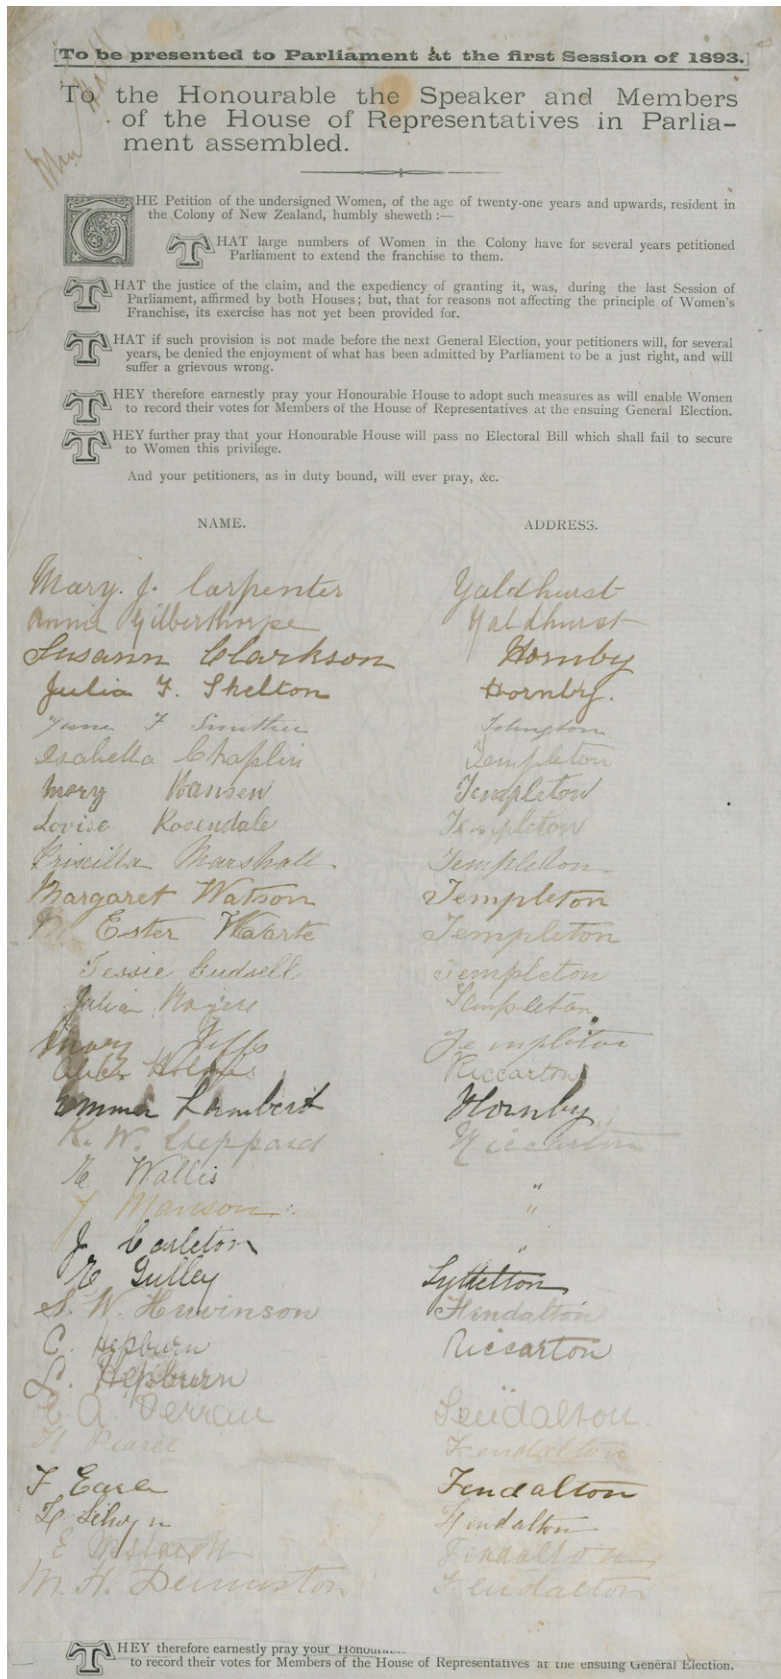 [To be presented to Parliament at the first Session of 1893.]
To the Honourable the Speaker and Members
of the House of Representatives in Parlia-
ment assembled.
THE Petition of the undersigned Women, of the age of twenty-one years and upwards, resident in
the Colony of New Zealand, humbly sheweth :—
THAT large numbers of Women in the Colony have for several years petitioned
Parliament to extend the franchise to them.
THAT the justice of the claim, and the expediency of granting it, was, during the last Session of
Parliament, affirmed by both Houses; but, that for reasons not affecting the principle of Women's
Franchise, its exercise has not yet been provided for.
THAT if such provision is not made before the next General Election, your petitioners will, for several
years, be denied the enjoyment of what has been admitted by Parliament to be a just right, and will
suffer a grievous wrong.
THEY therefore earnestly pray your Honourable House to adopt such measures as will enable Women
to record their votes for Members of the House of Representatives at the ensuing General Election.
THEY further pray that your Honourable House will pass no Electoral Bill which shall fail to secure
to Women this privilege.
And your petitioners, as in duty bound, will ever pray, &c.
NAME. ADDRESS.
Mary. J. Carpenter Yaldhurst
Annie Gilberthorpe Yaldhurst
Susann Clarkson Hornby
Julia F. Shelton Hornby.
Jane F
Isabella Chaplin Templeton
Mary Hansen Templeton
Lovise Rosendale Templeton
Priscilla Marshall Templeton
Margaret Watson Templeton
M. Ester Templeton
Jessie Templeton
Julia Rogers Templeton
Mary Templeton
Alice Holmes Riccarton
Emma Lambert Hornby
K. W. Sheppard Riccarton
Wallis "
J Manson "
J Carleton "
Gulley Lyttelton
S. W. Fendalton
C. Hepburn Riccarton
L. Hepburn
C A Fendalton
H Pearce Fendalton
F Earle Fendalton
H Selwyn Fendalton
E Fendalton
M. H. Denniston Fendalton
THEY therefore earnestly pray your
to record their votes for Members of the House of Representatives at the ensuing General Election.